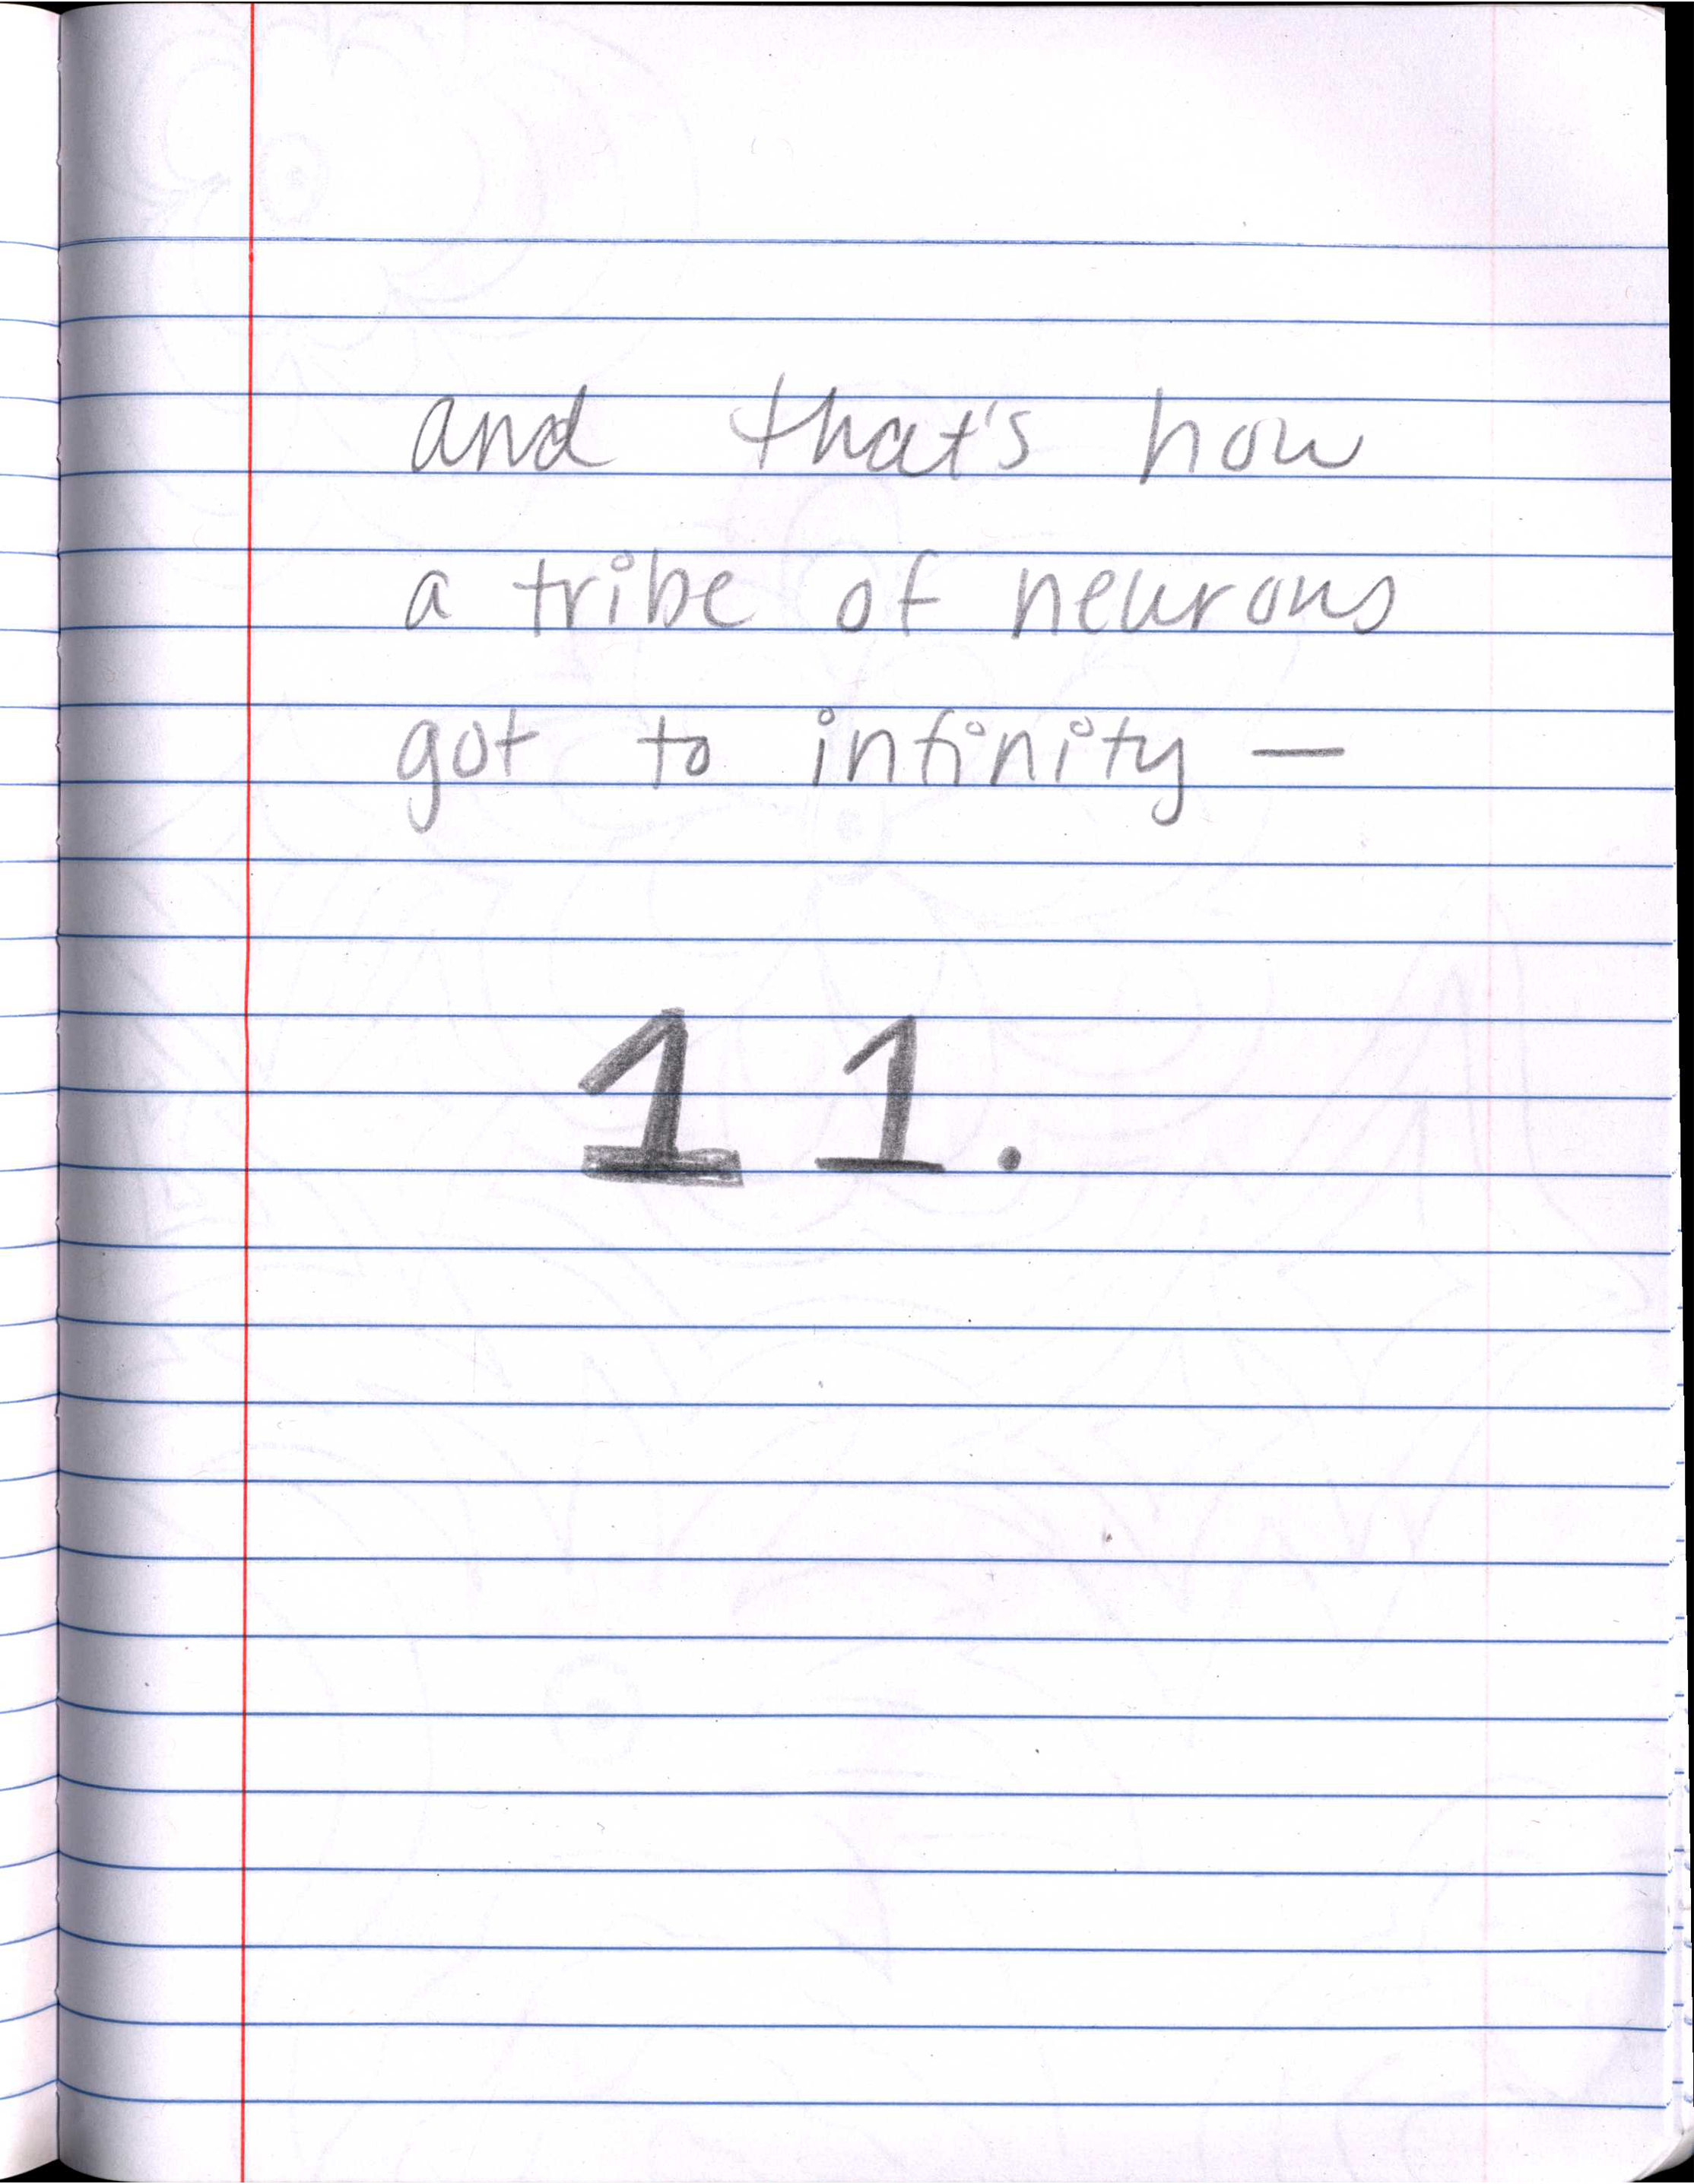 and that's how
a tribe of neurons
got to infinity —
11.